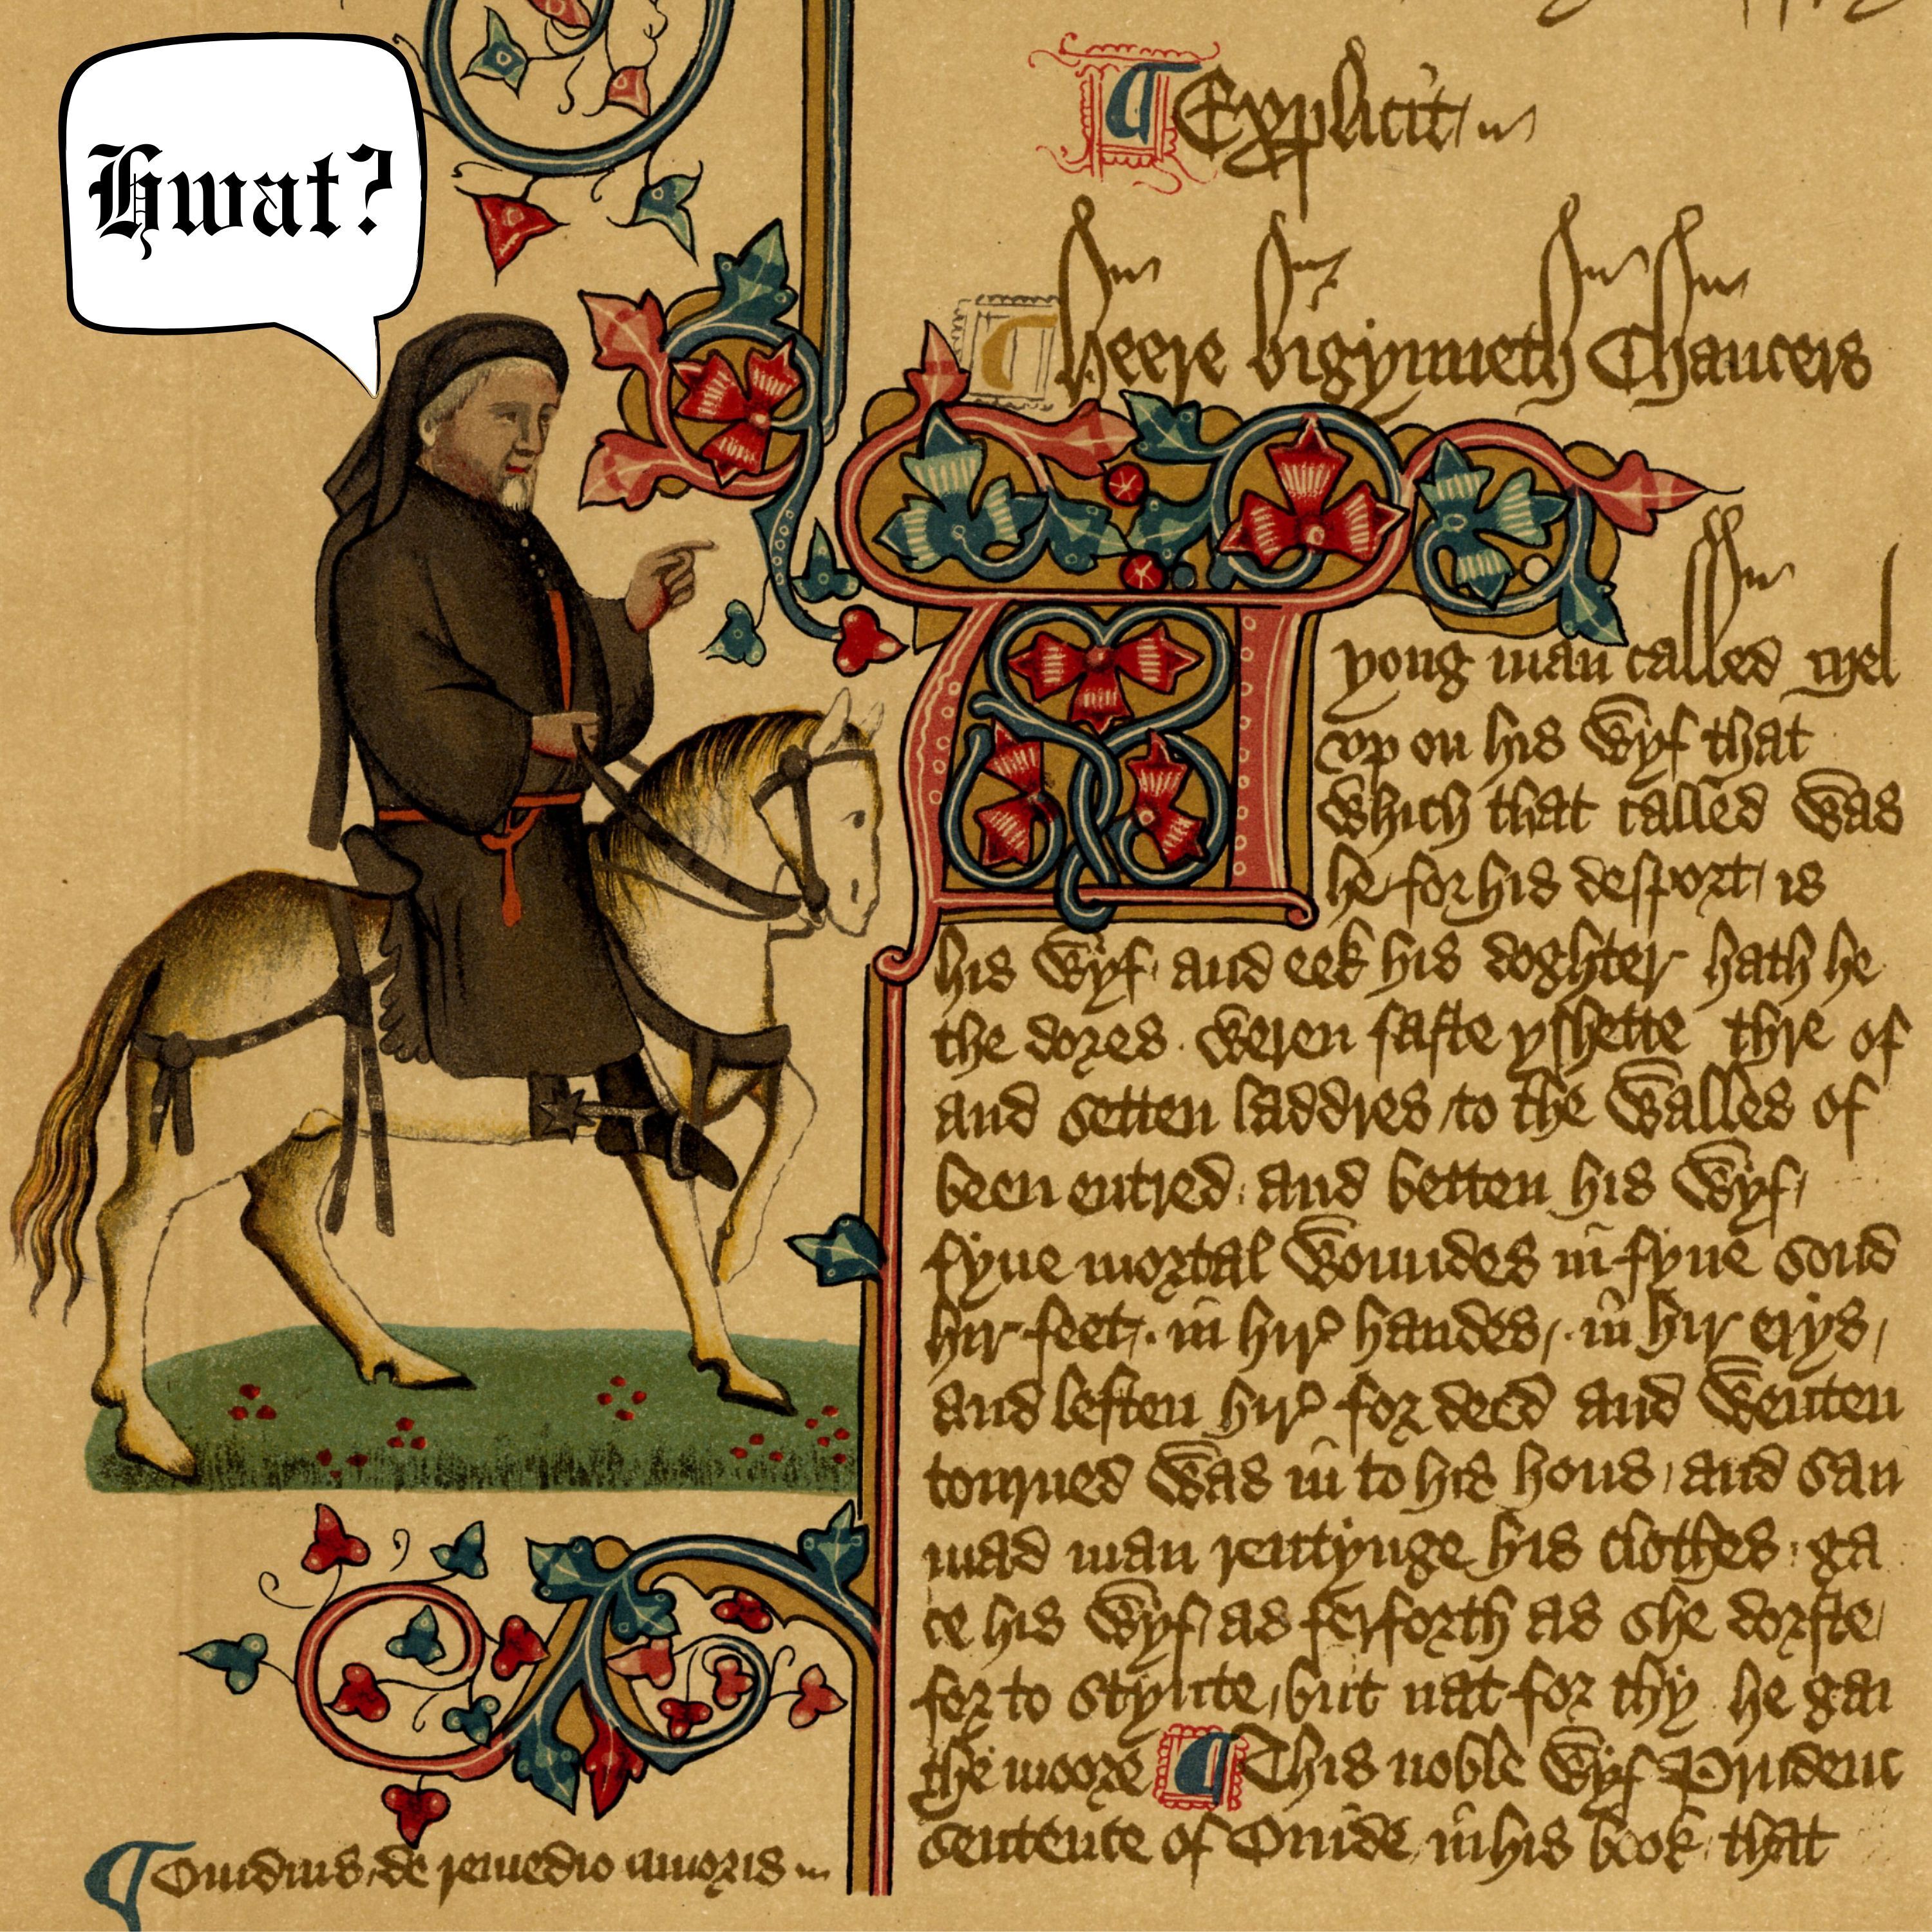 Hwat?
Explicit
Heere bigynneth Chaucers
yong man called Mel
vp on his wyf that
which that called was
he for his desport is
his wyf and eek his doghter hath he
the dores weren faste yshette thre of
and setten laddres to the walles of
been entred and betten his wyf
fyue mortal woundes in fyue sond
hir feet in hir handes in hir erys
and leften hir for deed and wenten
tourned was in to his hous and sau
mad man rentynge his clothes ga
te his wyf as ferforth as she dorste
for to stynte but nat for thy he gan
the moore This noble wyf Prudenc
sentence of Ouide in his book that
Ouidius de remedio amoris